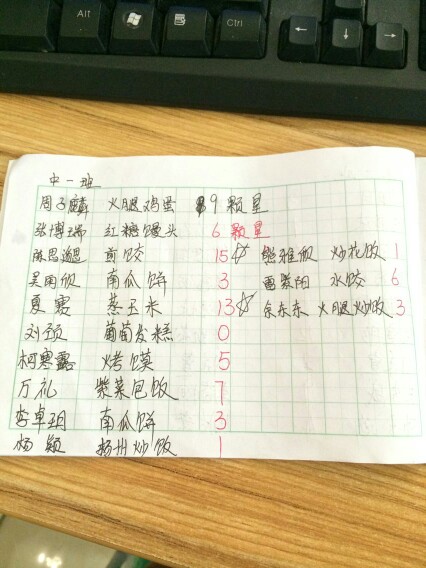 Alt
Ctrl
中一班
周子麟 火腿鸡蛋 9颗星
张博瑞 红糖馒头 6颗星
陈思邈 煎饺 15☆ 鲍雅欣 炒花饭 1
吴雨欣 南瓜饼 3 雷紫阳 水饺 6
夏雾 蒸玉米 13☆ 余东东 火腿炒饭 3
刘颈 葡萄发糕 0
柯寒露 烤馍 5
万礼 紫菜包饭 7
李卓玥 南瓜饼 3
杨颖 扬州炒饭 1